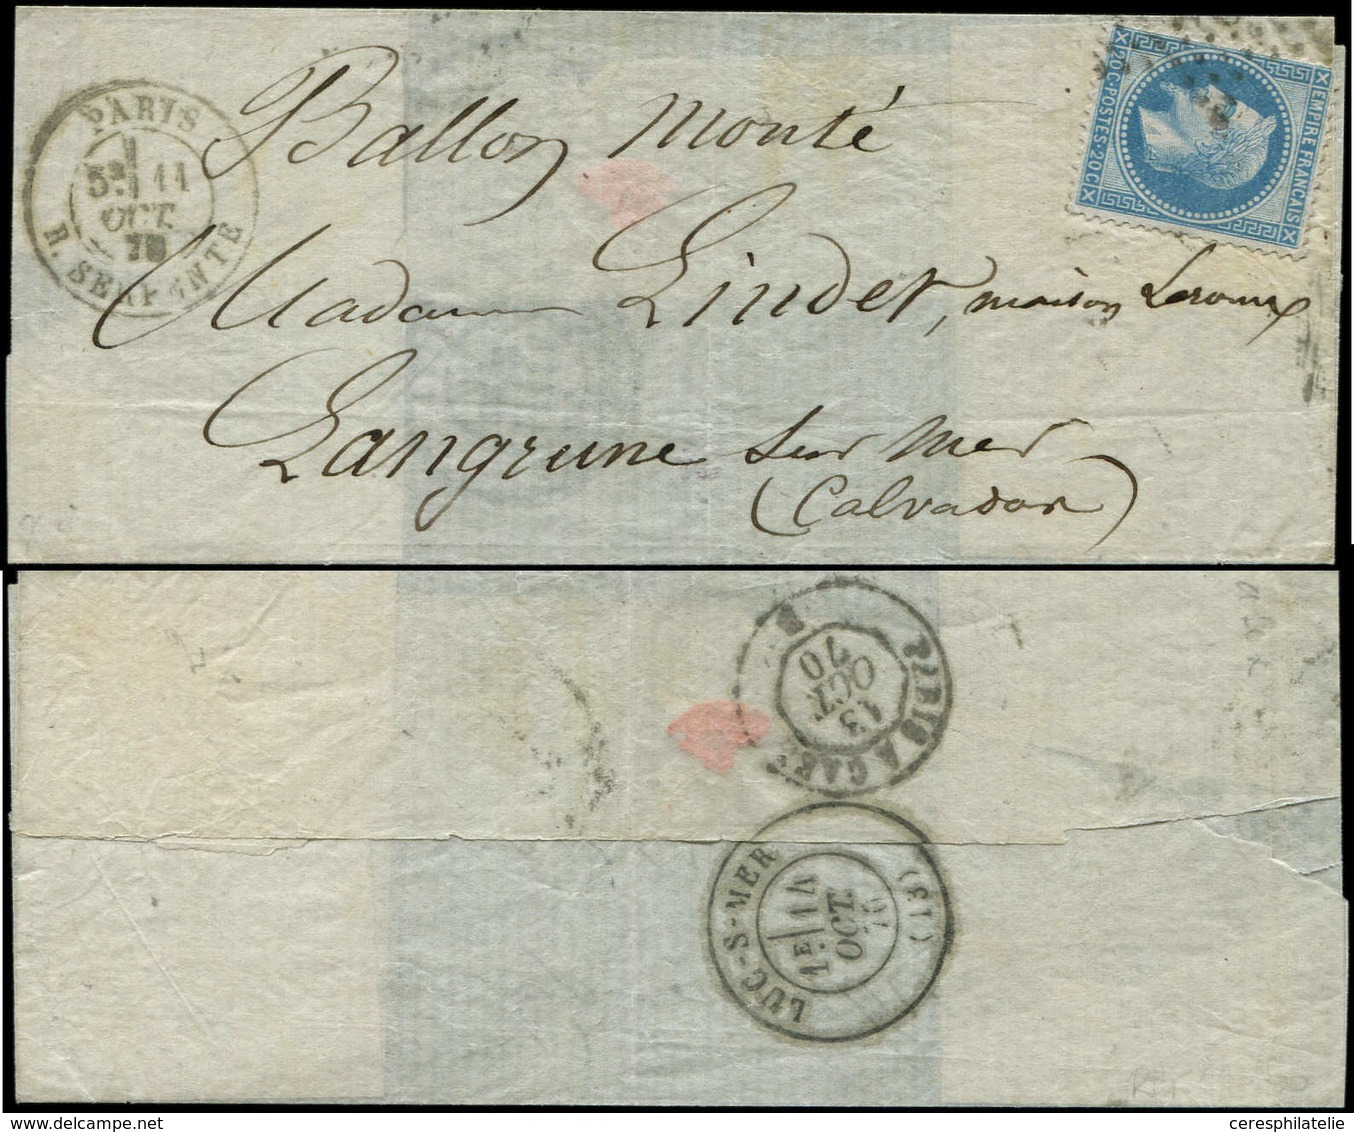 PARIS
5E 11
OCT.
70
R. SERPENTE
Ballon Monté
20C·POSTES·20C
EMPIRE FRANÇAIS
Madame Lindet, maison Leroux
Langrune sur Mer
(Calvados)
13
OCT.
70
LUC-S-MER
1E 14
OCT.
70
(13)
ceresphilatelie.com